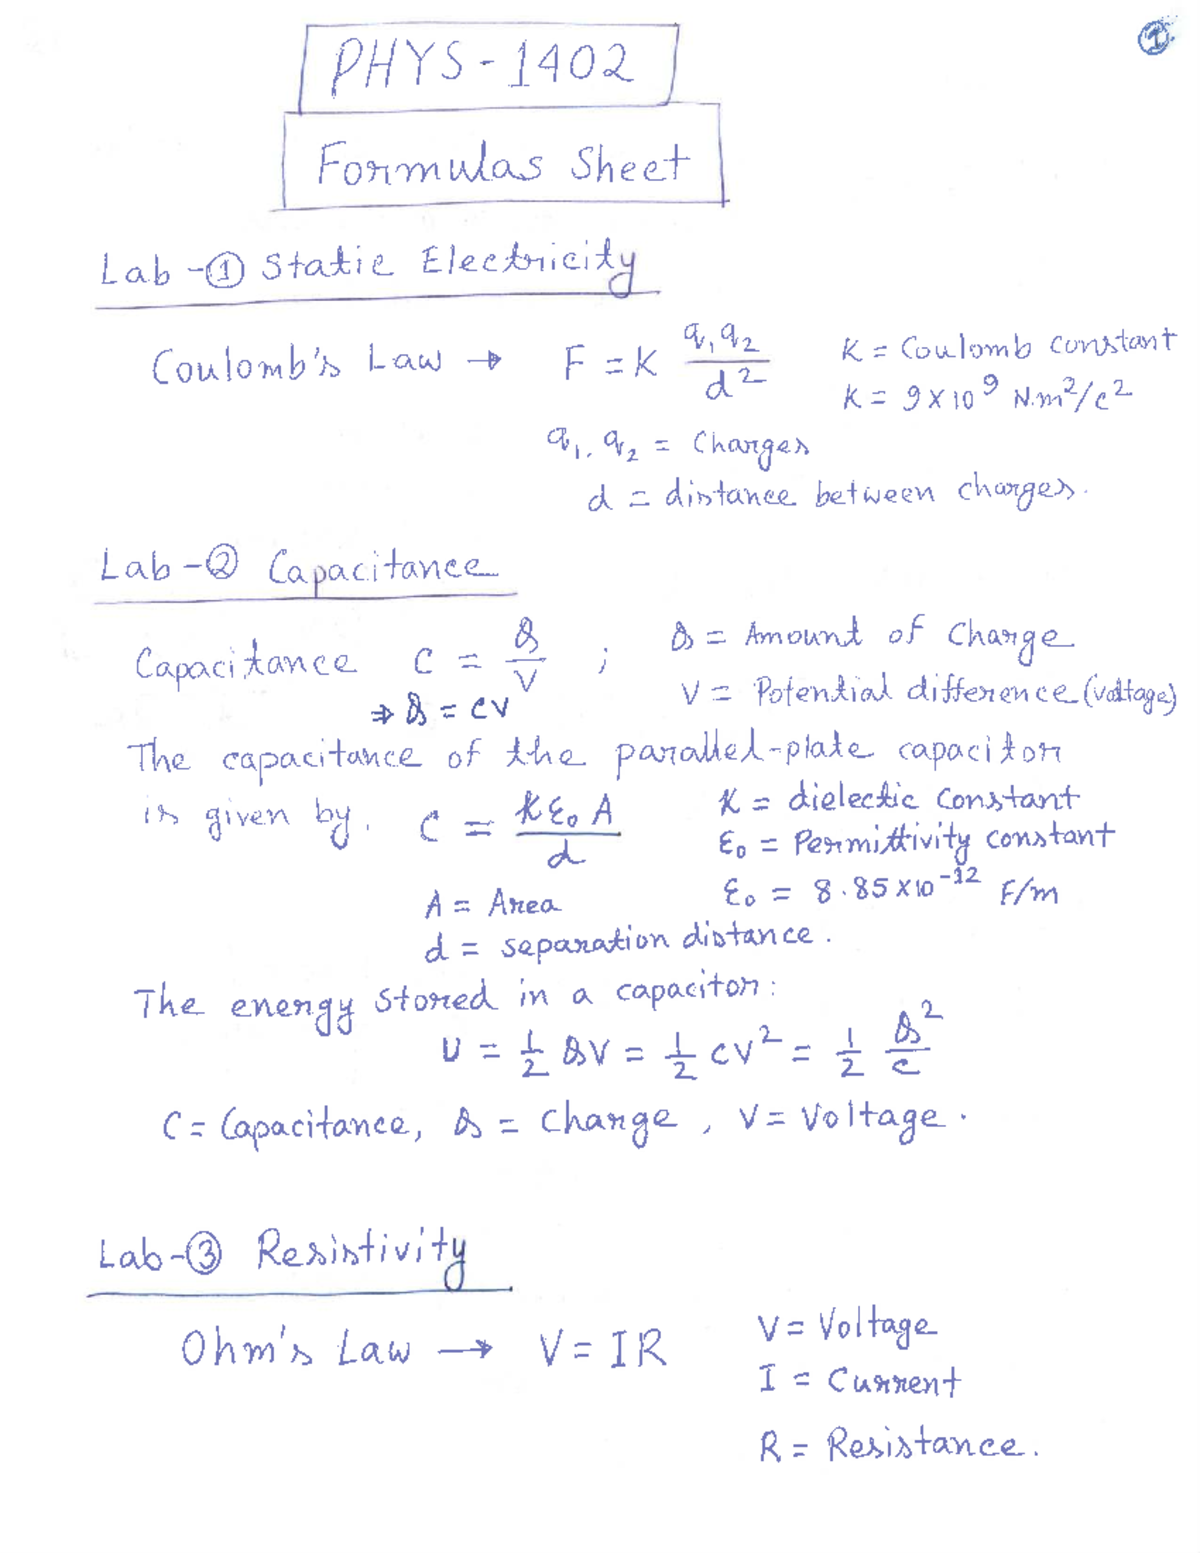 ①.
PHYS-1402
Formulas Sheet
Lab-① Static Electricity
Coulomb's Law → F = K q₁q₂/d² K = Coulomb constant
K = 9×10⁹ N.m²/c²
q₁, q₂ = Charges
d = distance between charges.
Lab-② Capacitance
Capacitance C = Q/V ; Q = Amount of Charge
⇒ Q = CV V = Potential difference (voltage)
The capacitance of the parallel-plate capacitor
is given by. C = Kε₀A/d K = dielectic constant
ε₀ = Permittivity constant
A = Area ε₀ = 8.85×10⁻¹² F/m
d = separation distance.
The energy stored in a capacitor:
U = 1/2 QV = 1/2 CV² = 1/2 Q²/C
C = Capacitance, Q = Charge, V = Voltage.
Lab-③ Resistivity
Ohm's Law → V = IR V = Voltage
I = Current
R = Resistance.